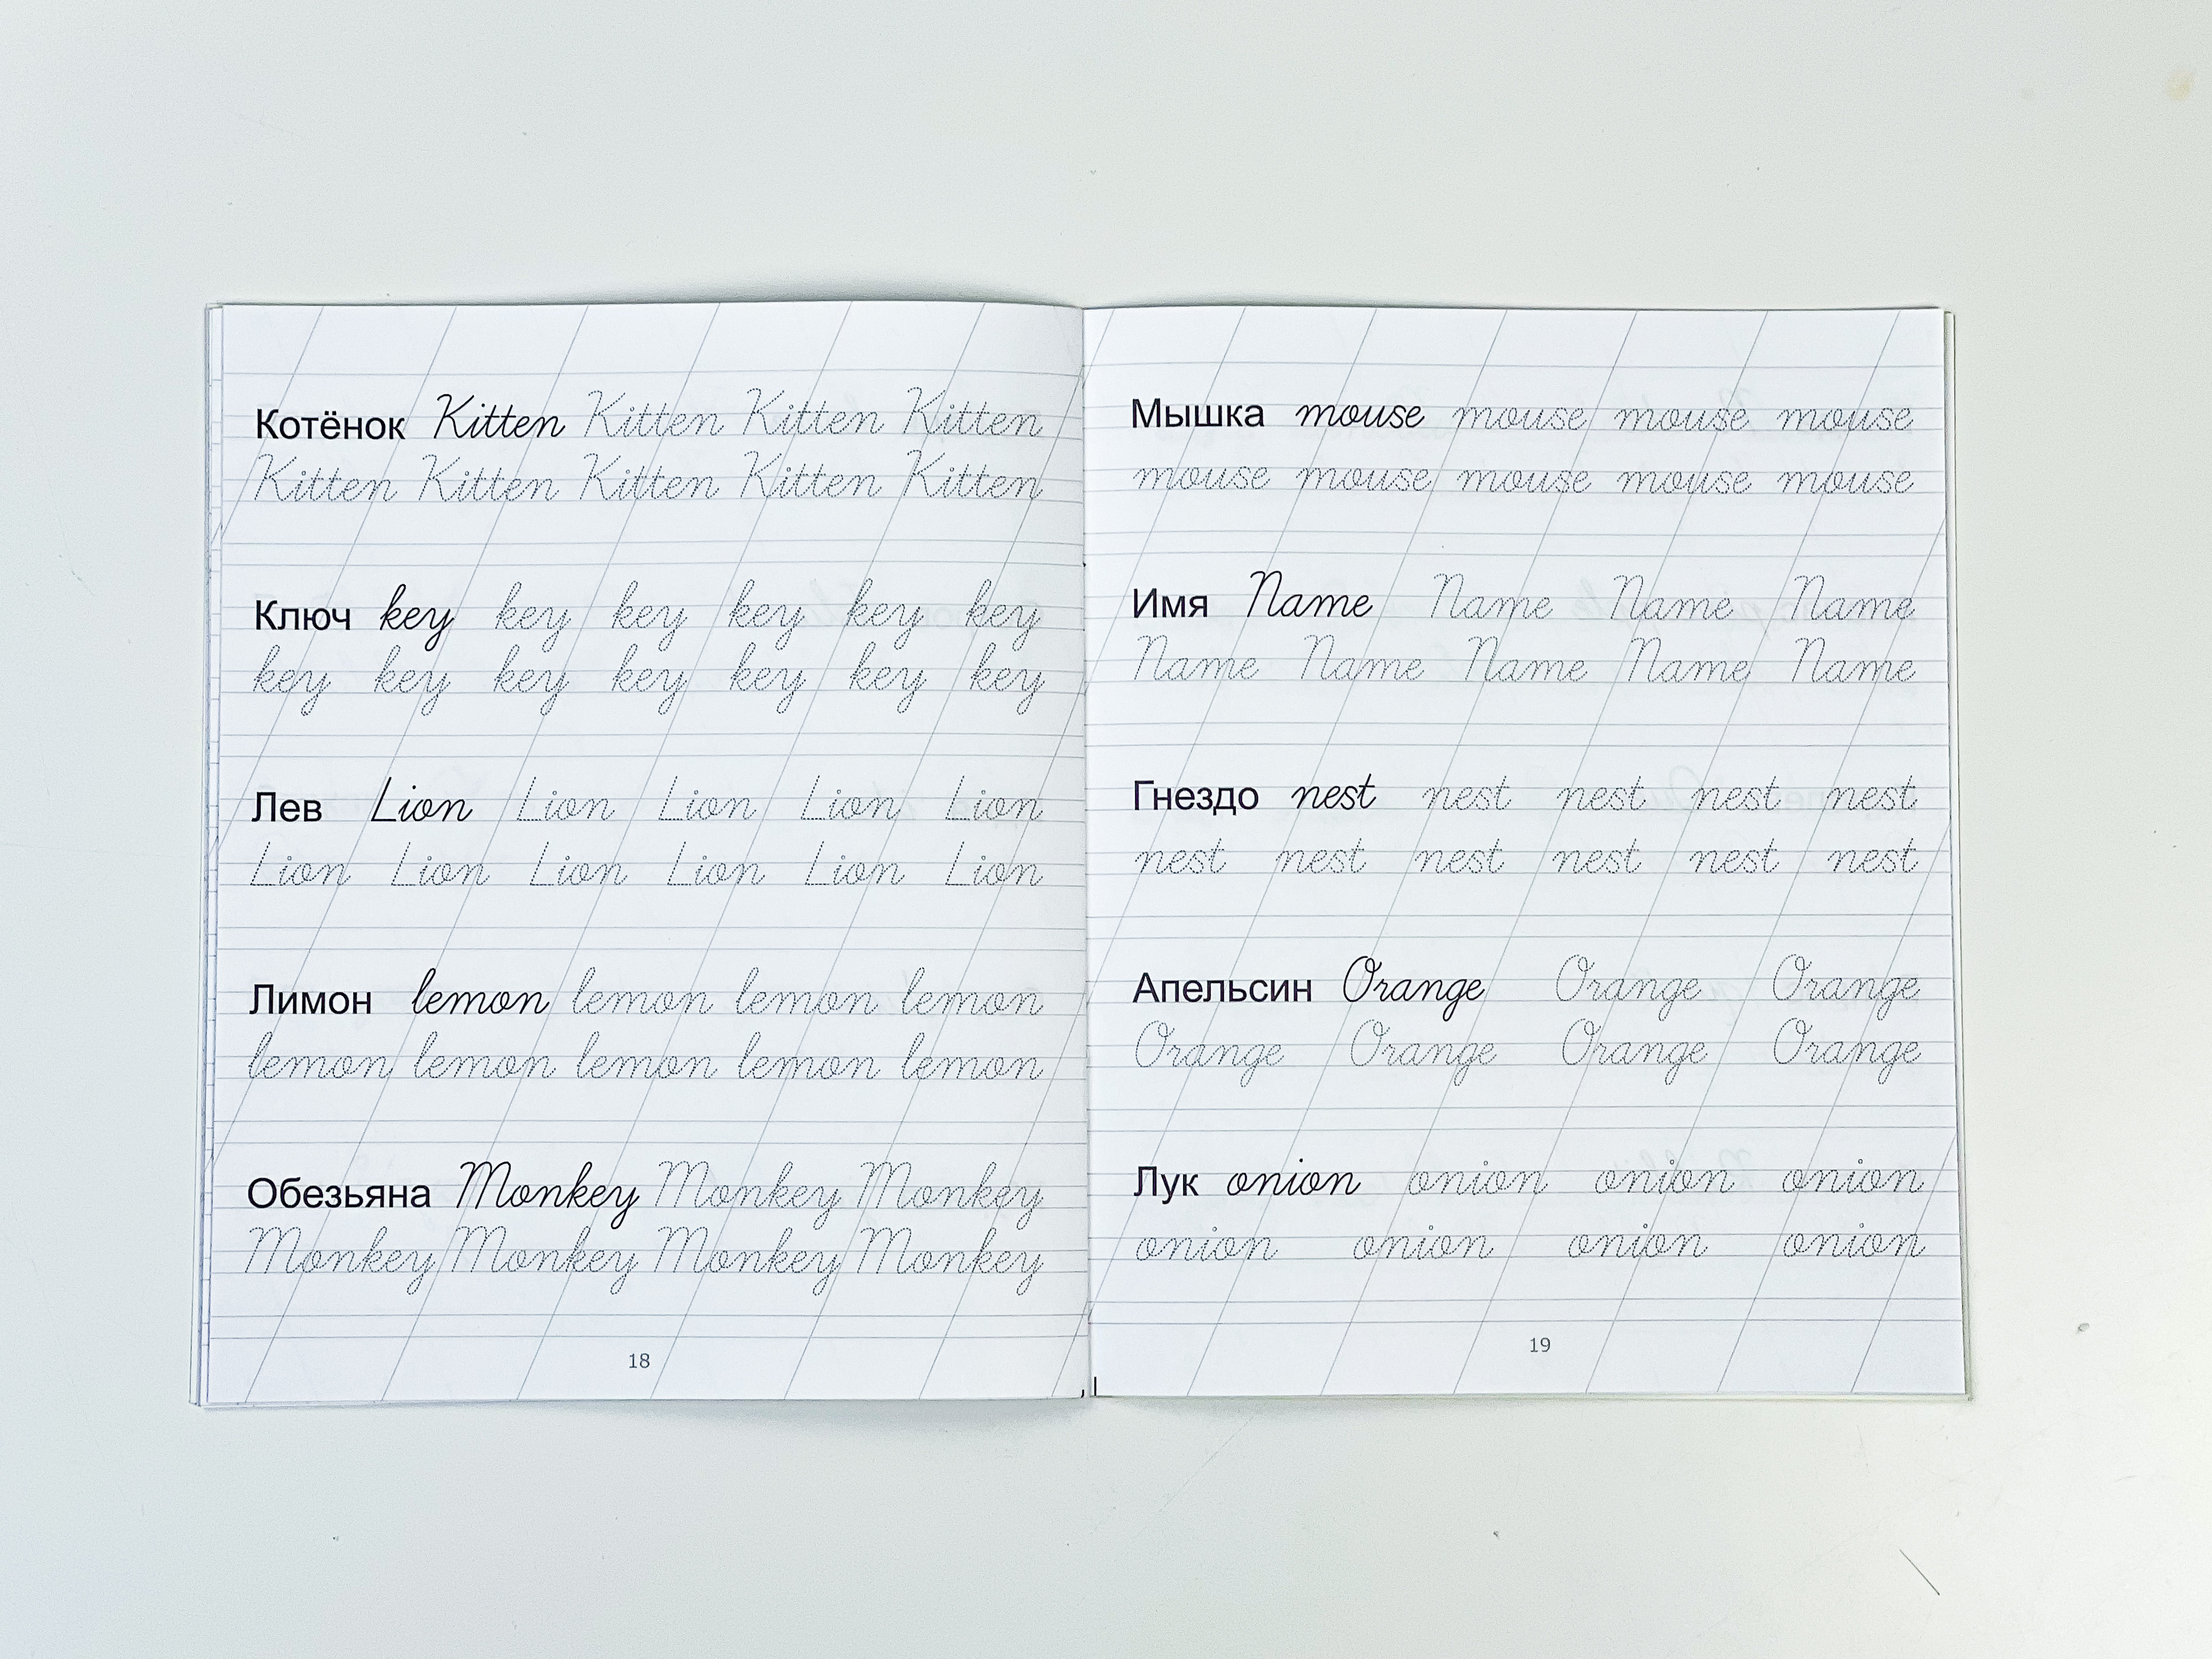 Котёнок Kitten Kitten Kitten Kitten
Kitten Kitten Kitten Kitten Kitten
Ключ key key key key key key
key key key key key key key
Лев Lion Lion Lion Lion Lion
Lion Lion Lion Lion Lion Lion
Лимон lemon lemon lemon lemon
lemon lemon lemon lemon lemon
Обезьяна Monkey Monkey Monkey
Monkey Monkey Monkey Monkey
18
Мышка mouse mouse mouse mouse
mouse mouse mouse mouse mouse
Имя Name Name Name Name
Name Name Name Name Name
Гнездо nest nest nest nest nest
nest nest nest nest nest nest
Апельсин Orange Orange Orange
Orange Orange Orange Orange
Лук onion onion onion onion
onion onion onion onion
19